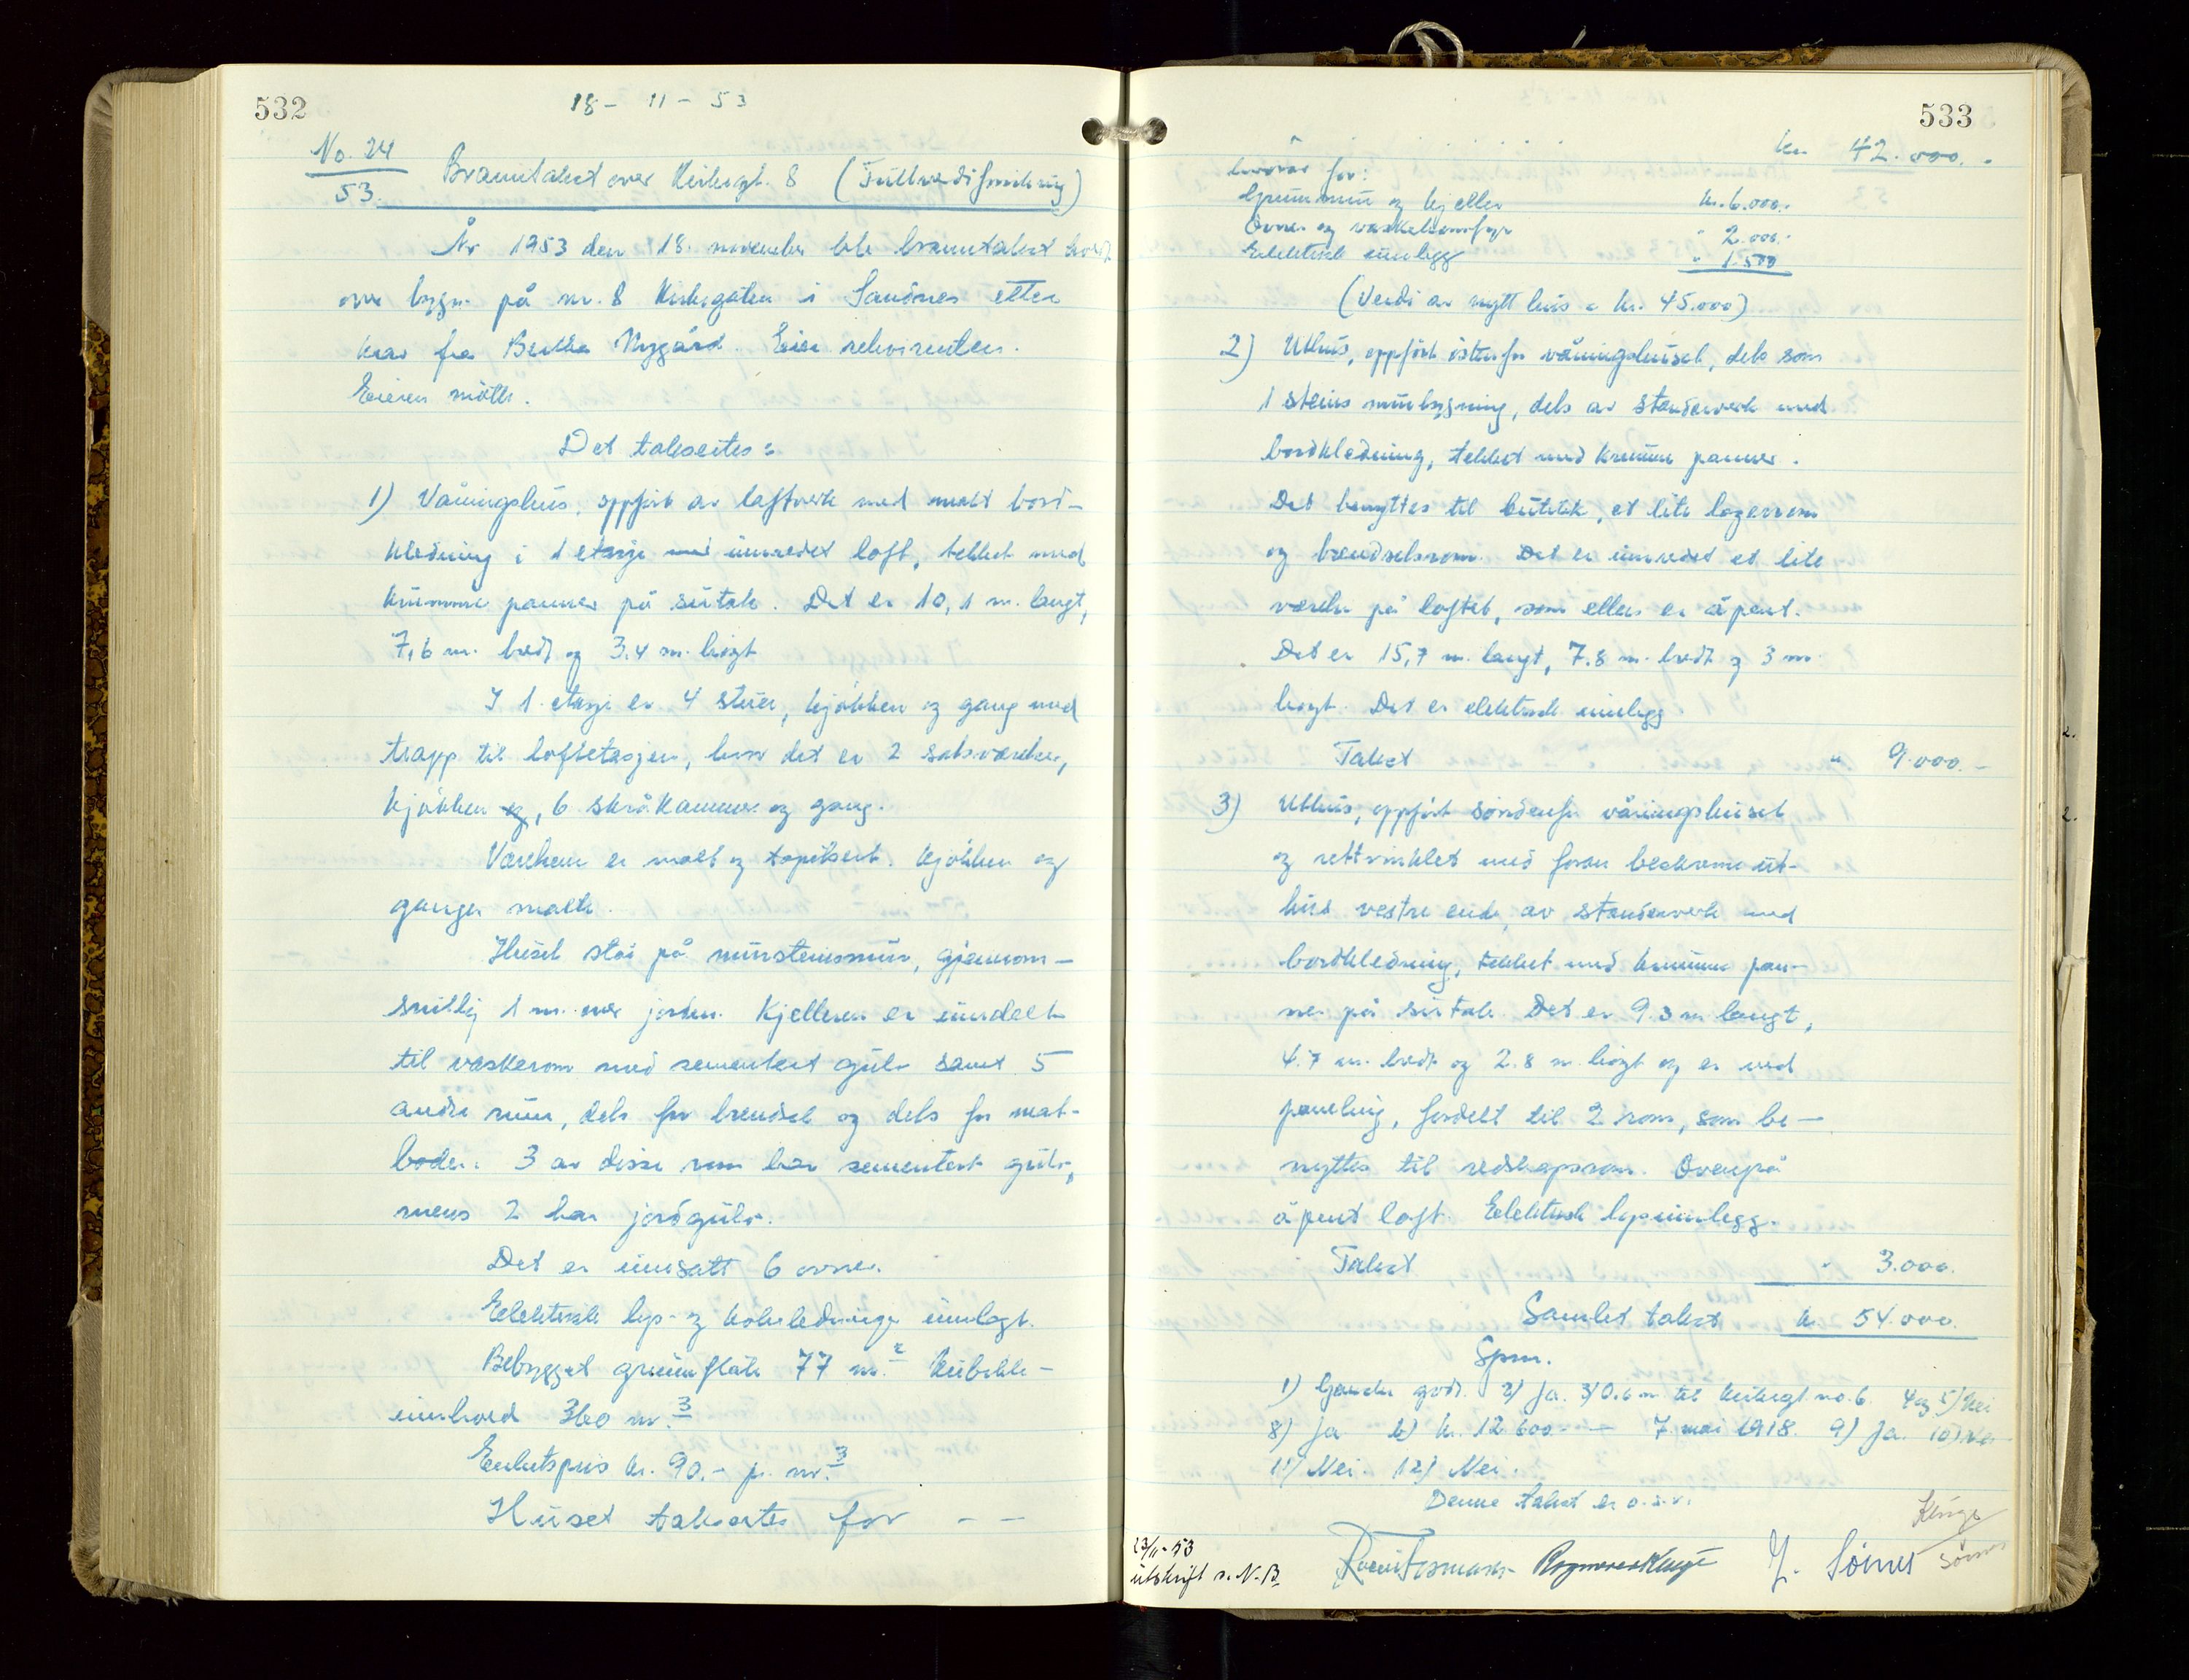 532
18 - 11 - 53
No. 24
53. Branntakst over Kirkegt. 8 (Fullverdiforsikring)
År 1953 den 18. november ble branntakst holdt
over bygn. på nr. 8 Kirkegaten i Sandnes etter
krav fra Bertha Nygård. Eier rekvirenten.
Eieren møtte.
Det takseites:
1) Våningshus, oppført av laftverk med malt bord-
kledning i 1 etasje med innredet loft, tekket med
krumme panner på sutak. Det er 10,1 m. langt,
7,6 m. bredt og 3.4 m. høgt
I 1. etasje er 4 stuer, kjøkken og gang med
trapp til loftetasjen, hvor det er 2 salsværelser,
kjøkken og, 6 skråkammer og gang.
Værelsene er malt og tapetsert. Kjøkken og
ganger malte.
Huset står på mursteinsmur, gjennom-
snittlig 1 m. over jorden. Kjelleren er inndelt
til vaskerom med sementert gulv samt 5
andre rum, dels for brendsel og dels for mat-
boder. 3 av disse rum har sementert gulv,
mens 2 har jordgulv.
Det er innsatt 6 ovner.
Elektrisk lys- og kokeledninger innlagt.
Bebygget grunnflate 77 m.2 Kubikk-
innhold 360 m.3
Enhetspris kr. 90.- pr. m.3
Huset takseites for - -
533
kr. 42.000.-
hvorav for:
Grunnmur og kjeller kr. 6.000.-
Ovner og vaskekomfyr " 2.000.-
Elektrisk innlegg " 1.500
(Verdi av nytt hus = kr. 45.000)
2) Uthus, oppført østenfor våningshuset, dels som
1 steins murbygning, dels av stenderverk med
bordkledning, tekket med krumme panner.
Det benyttes til butikk, et lite lagerrom
og brendselsrom. Det er innredet et lite
værelse på loftet, som ellers er åpent.
Det er 15,7 m. langt, 7.8 m. bredt og 3 m.
høgt. Det er elektrisk innlegg
Takst " 9.000.-
3) Uthus, oppført sønnenfor våningshuset
og rettvinklet med foran beskrevne ut-
hus vestre ende, av stenderverk med
bordkledning, tekket med krumme pan-
ner på sutak. Det er 9.3 m langt,
4.7 m. bredt og 2.8 m. høgt og er med
paneling, fordelt til 2 rom, som be-
nyttes til redskapsrom. Ovenpå
åpent loft. Elektrisk lysinnlegg.
Takst " 3.000.
Samlet takst kr. 54.000.
Spm.
1) Ganske godt. 2) Ja. 3) 0.6 m. til Kirkegt. no. 6. 4 og 5) Nei
8) Ja b) kr. 12.600.- - 7. mai 1918. 9) Ja. 10) Nei
11) Nei. 12) Nei.
Denne takst er o.s.v.
23/11-53
utskrift s. N.B.
Klinge
Sømes